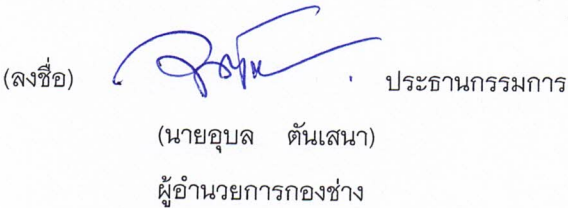 (ลงชื่อ) ประธานกรรมการ
(นายอุบล ตันเสนา)
ผู้อำนวยการกองช่าง